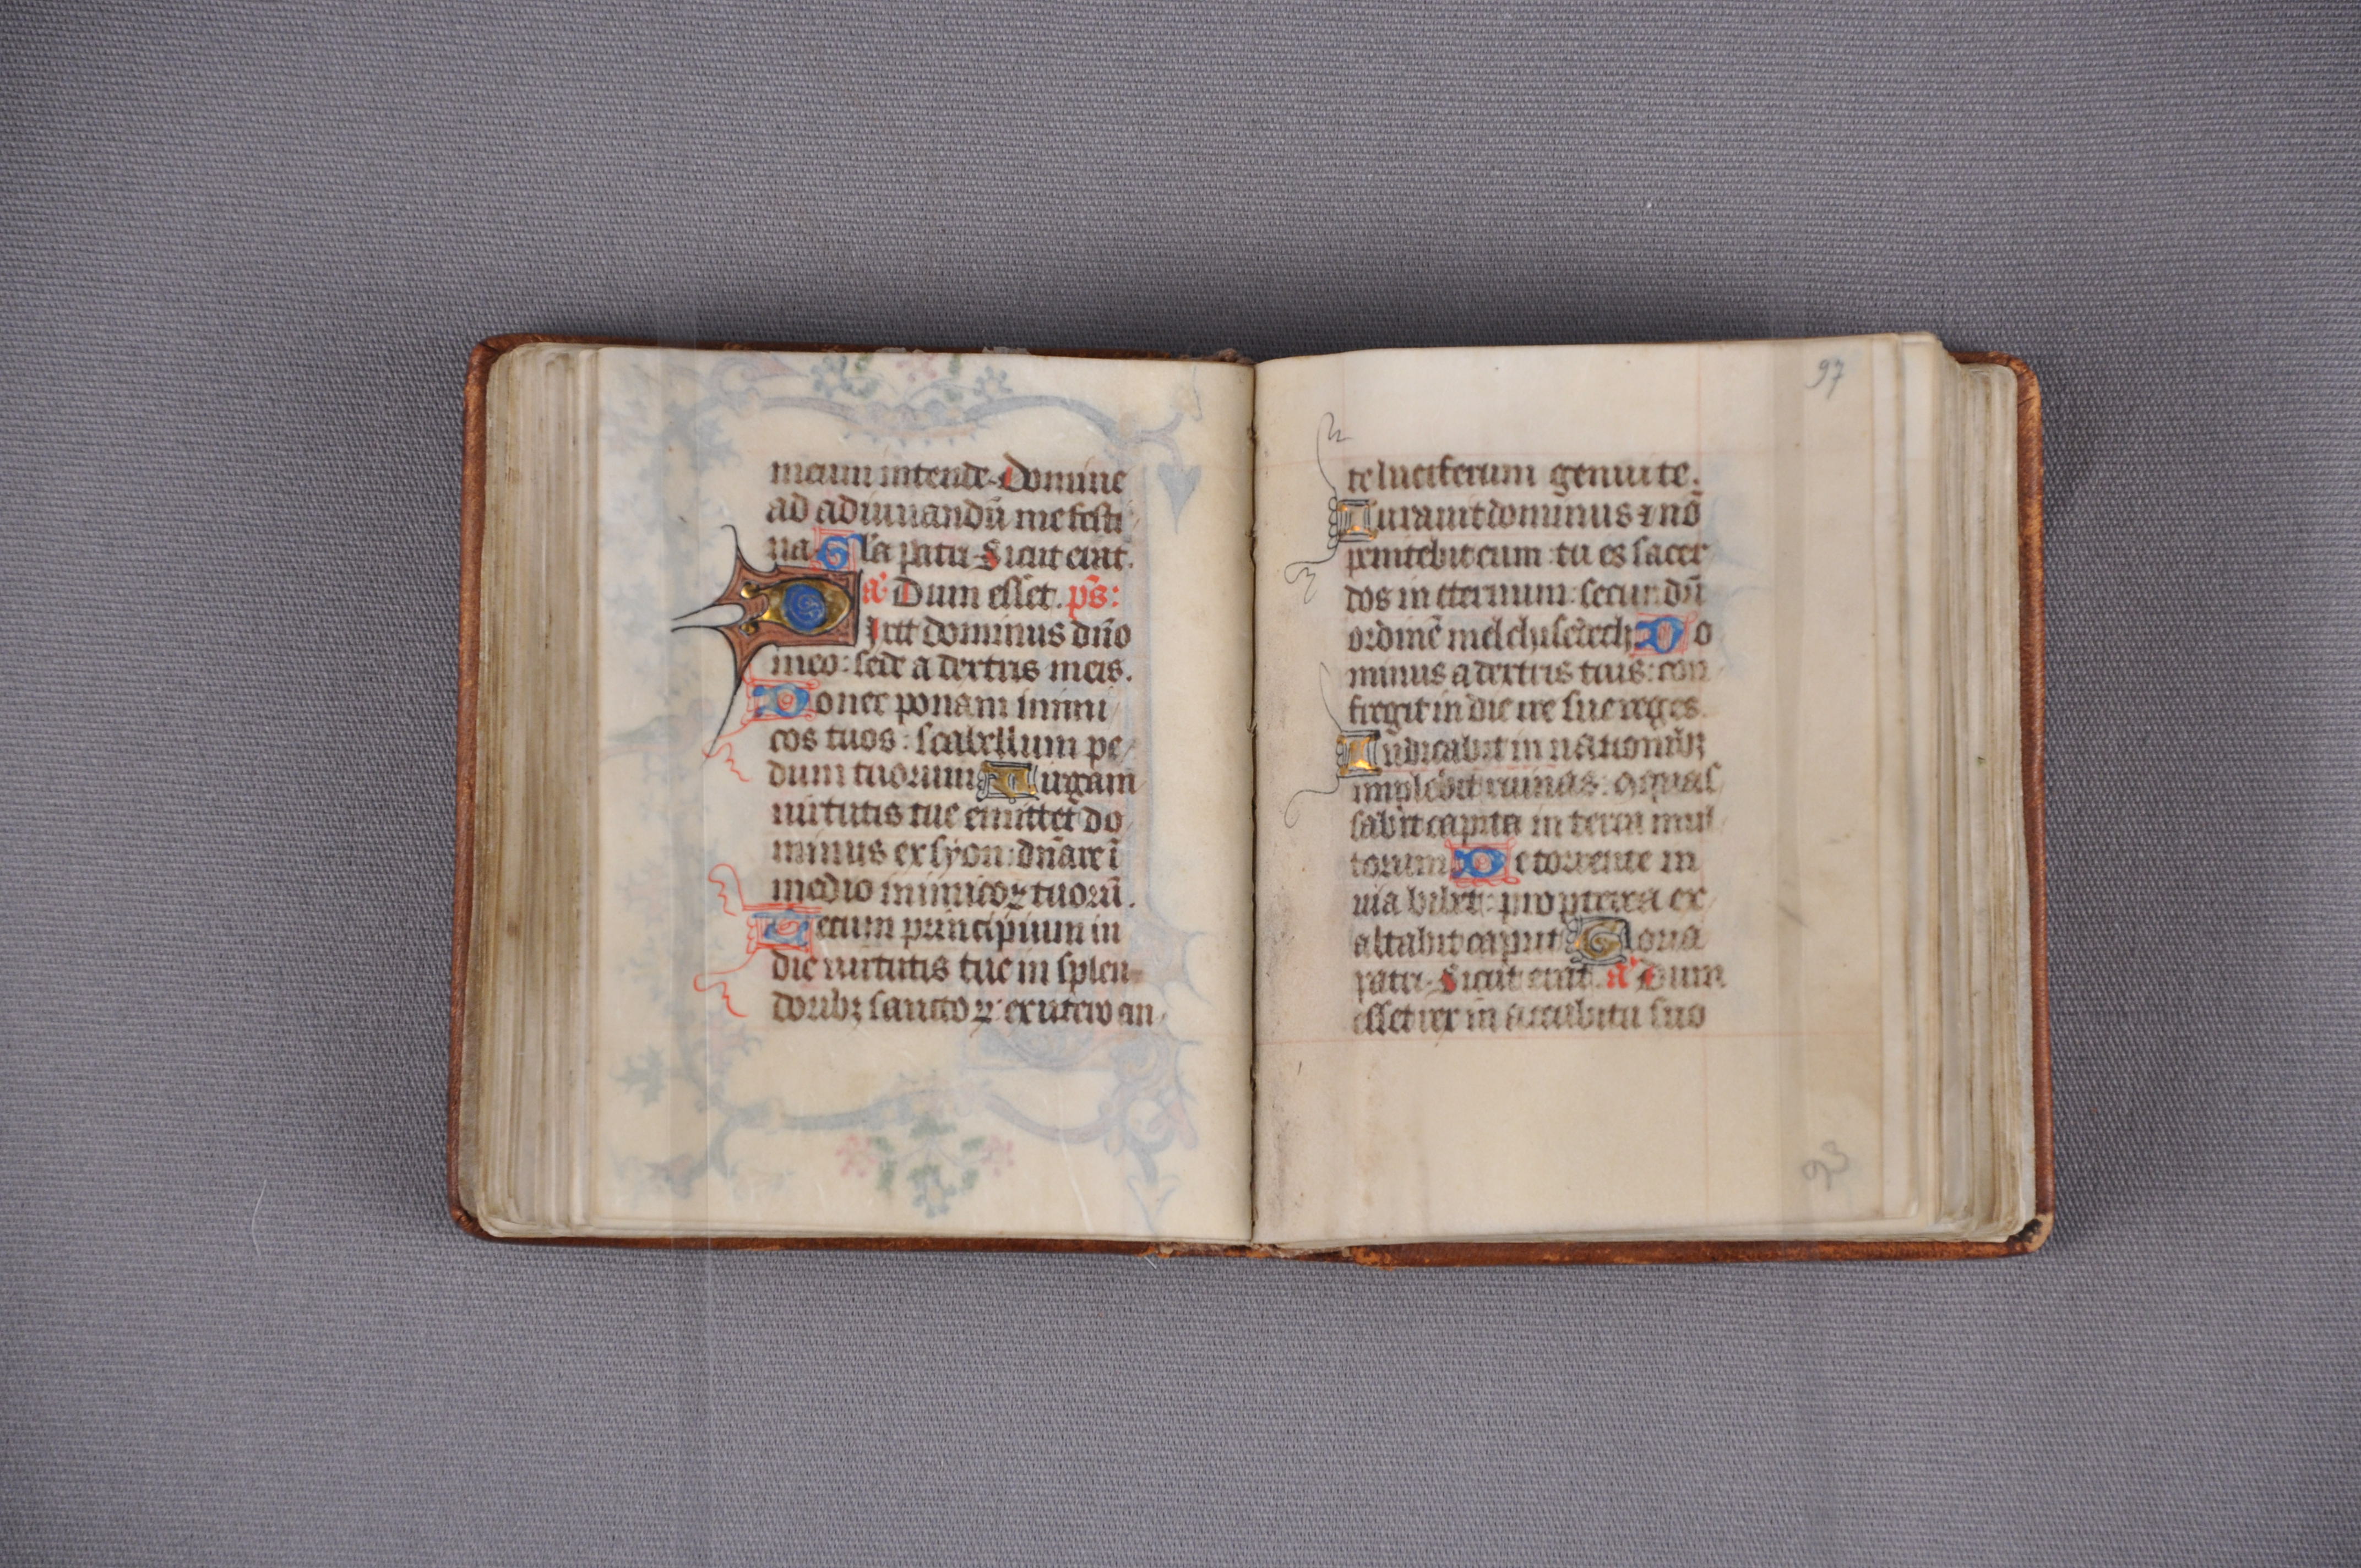 meum intende. Domine
ad adiuuandū me festi
na. Gl'a patri. Sicut erat.
a' Dum esset. ps̄:
Dixit dominus dn̄o
meo: sede a dextris meis.
Donec ponam inimi
cos tuos: scabellum pe
dum tuorum Uirgam
uirtutis tue emittet do
minus ex syon: dn̄are ī
medio inimicoꝝ tuorū.
Tecum principium in
die uirtutis tue in splen
doribꝫ sanctoꝝ: ex utero an
97
te luciferum genui te.
Iurauit dominus ⁊ nō
penitebit eum: tu es sacer
dos in eternum: secundū
ordinē melchisedech Do
minus a dextris tuis: con
fregit in die ire sue reges.
Iudicabit in nationibꝫ
implebit ruinas: ꝯquas
sabit capita in terra mul
torum De torrente in
uia bibet: propterea ex
altabit caput Gloria
patri. Sicut erat. a' Dum
esset rex in accubitu suo
93